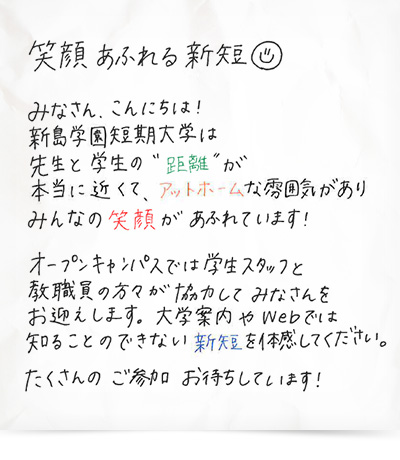 笑顔あふれる新短☺
みなさん、こんにちは!
新島学園短期大学は
先生と学生の"距離"が
本当に近くて、アットホームな雰囲気があり
みんなの笑顔があふれています!
オープンキャンパスでは学生スタッフと
教職員の方々が協力してみなさんを
お迎えします。大学案内やWebでは
知ることのできない新短を体感してください。
たくさんのご参加お待ちしています!